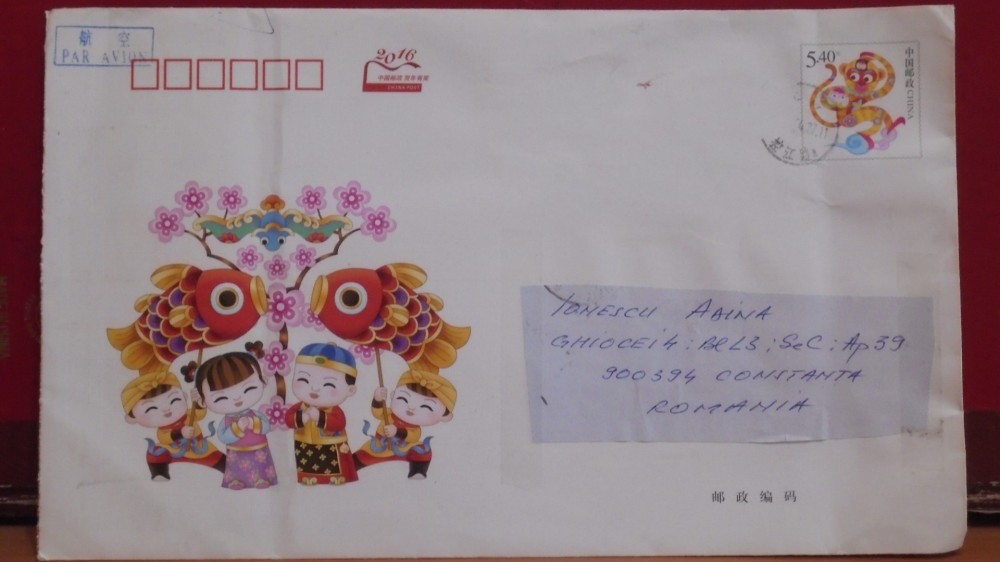 航 空
PAR AVION
2016
中国邮政 贺年有奖
CHINA POST
5.40元
中国邮政 CHINA
IONESCU ADINA
GHIOCEI 4 : BL L3 : Sc C : Ap 39
900394 CONSTANTA
ROMANIA
邮 政 编 码